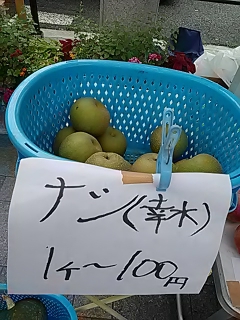 ナシ(幸水)
1ケ〜100円